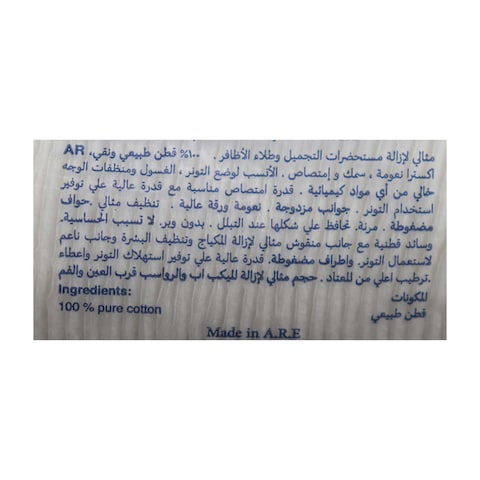 مثالي لإزالة مستحضرات التجميل وطلاء الأظافر . ١٠٠% قطن طبيعي ونقي، AR
اكسترا نعومة ، سمك و إمتصاص . الأنسب لوضع التونر ، الغسول ومنظفات الوجه
خالي من أي مواد كيميائية . قدرة امتصاص مناسبة مع قدرة عالية علي توفير
استخدام التونر . جوانب مزدوجة . نعومة ورقة عالية . تنظيف مثالي .حواف
مضغوطة . مرنة. تحافظ علي شكلها عند التبلل. بدون وبر. لا تسبب الحساسية.
وسائد قطنية مع جانب منقوش مثالي لإزالة للمكياج وتنظيف البشرة وجانب ناعم
لاستعمال التونر. واطراف مضغوطة. قدرة عالية علي توفير استهلاك التونر وإعطاء
.ترطيب اعلي من للعتاد . حجم مثالي لإزالة للميكب اب والرواسب قرب العين والفم
Ingredients: للكونات
100 % pure cotton قطن طبيعي
Made in A.R.E